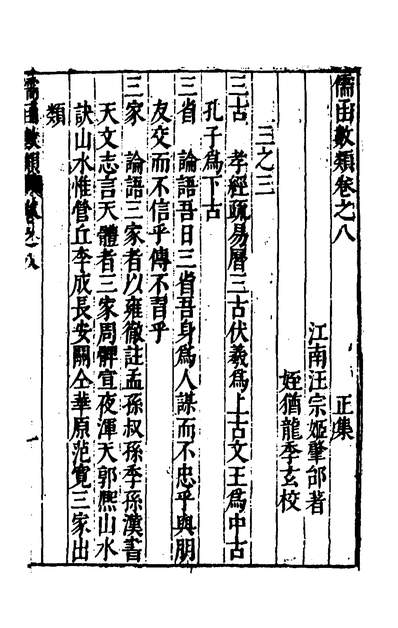 儒函數類卷之八　正集
江南汪宗姬肇郃著
姪猶龍季玄校
三之三
三古　孝經疏易曆三古伏羲爲上古文王爲中古
孔子爲下古
三省　論語吾日三省吾身爲人謀而不忠乎與朋
友交而不信乎傳不習乎
三家　論語三家者以雍徹註孟孫叔孫季孫漢書
天文志言天體者三家周髀宣夜渾天郭熈山水
訣山水惟營丘李成長安關仝華原范寬三家出
類
儒函數類 卷之八